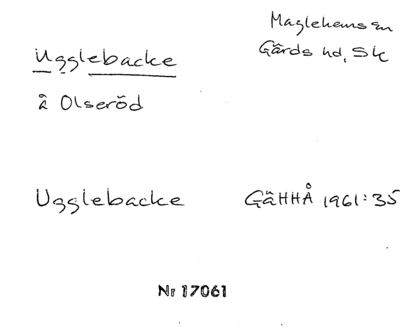 Maglehems sn
Gärds hd, Sk
Ugglebacke
å Olseröd
Ugglebacke GäHHÅ 1961:35
Nr 17061